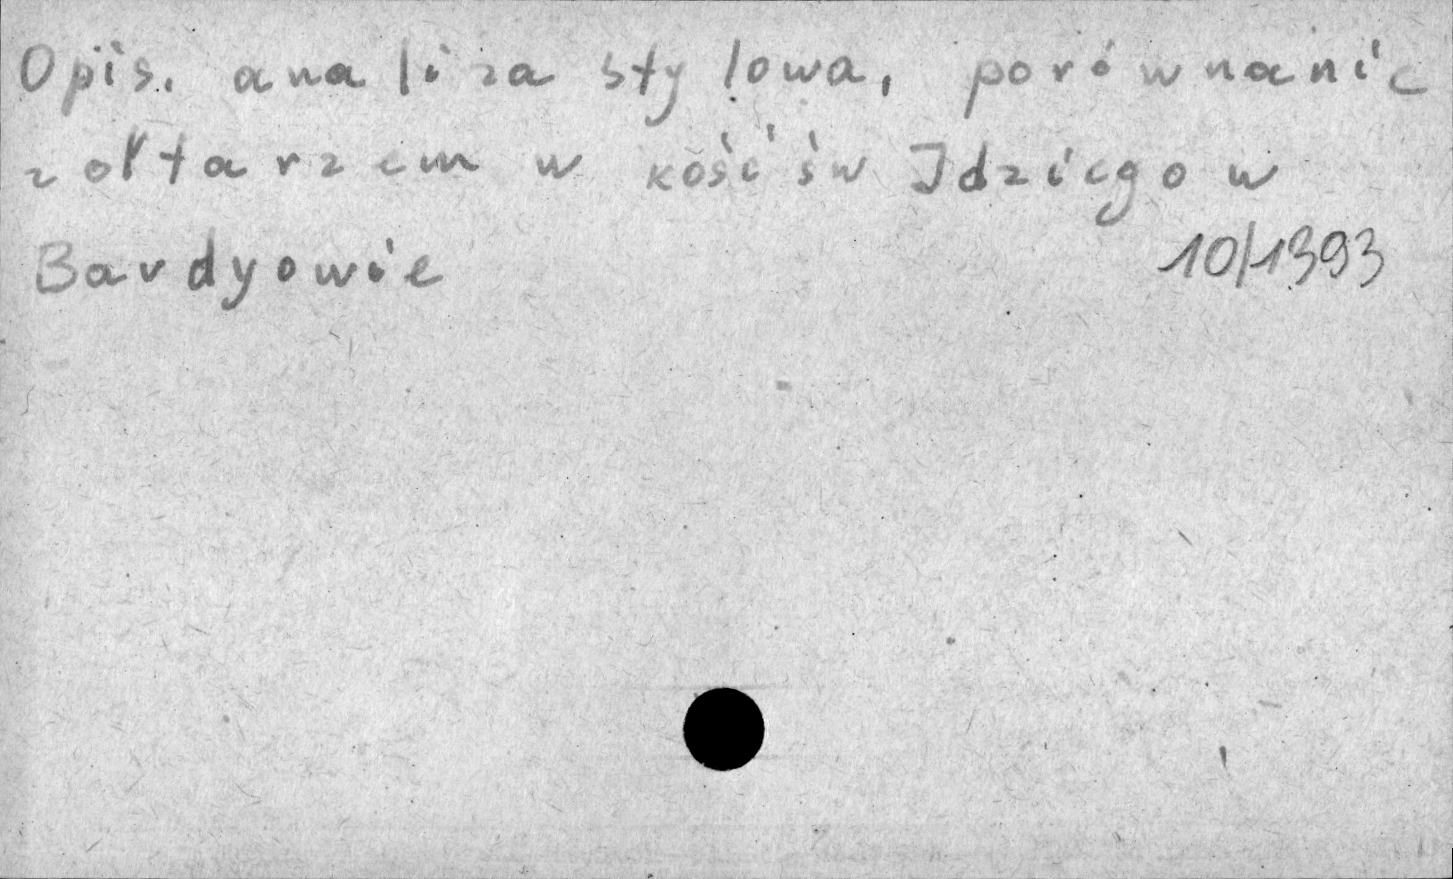 Opis. analiza stylowa, porównanie
z ołtarzem w kość św Idziego w
Bardyowie 10/1393